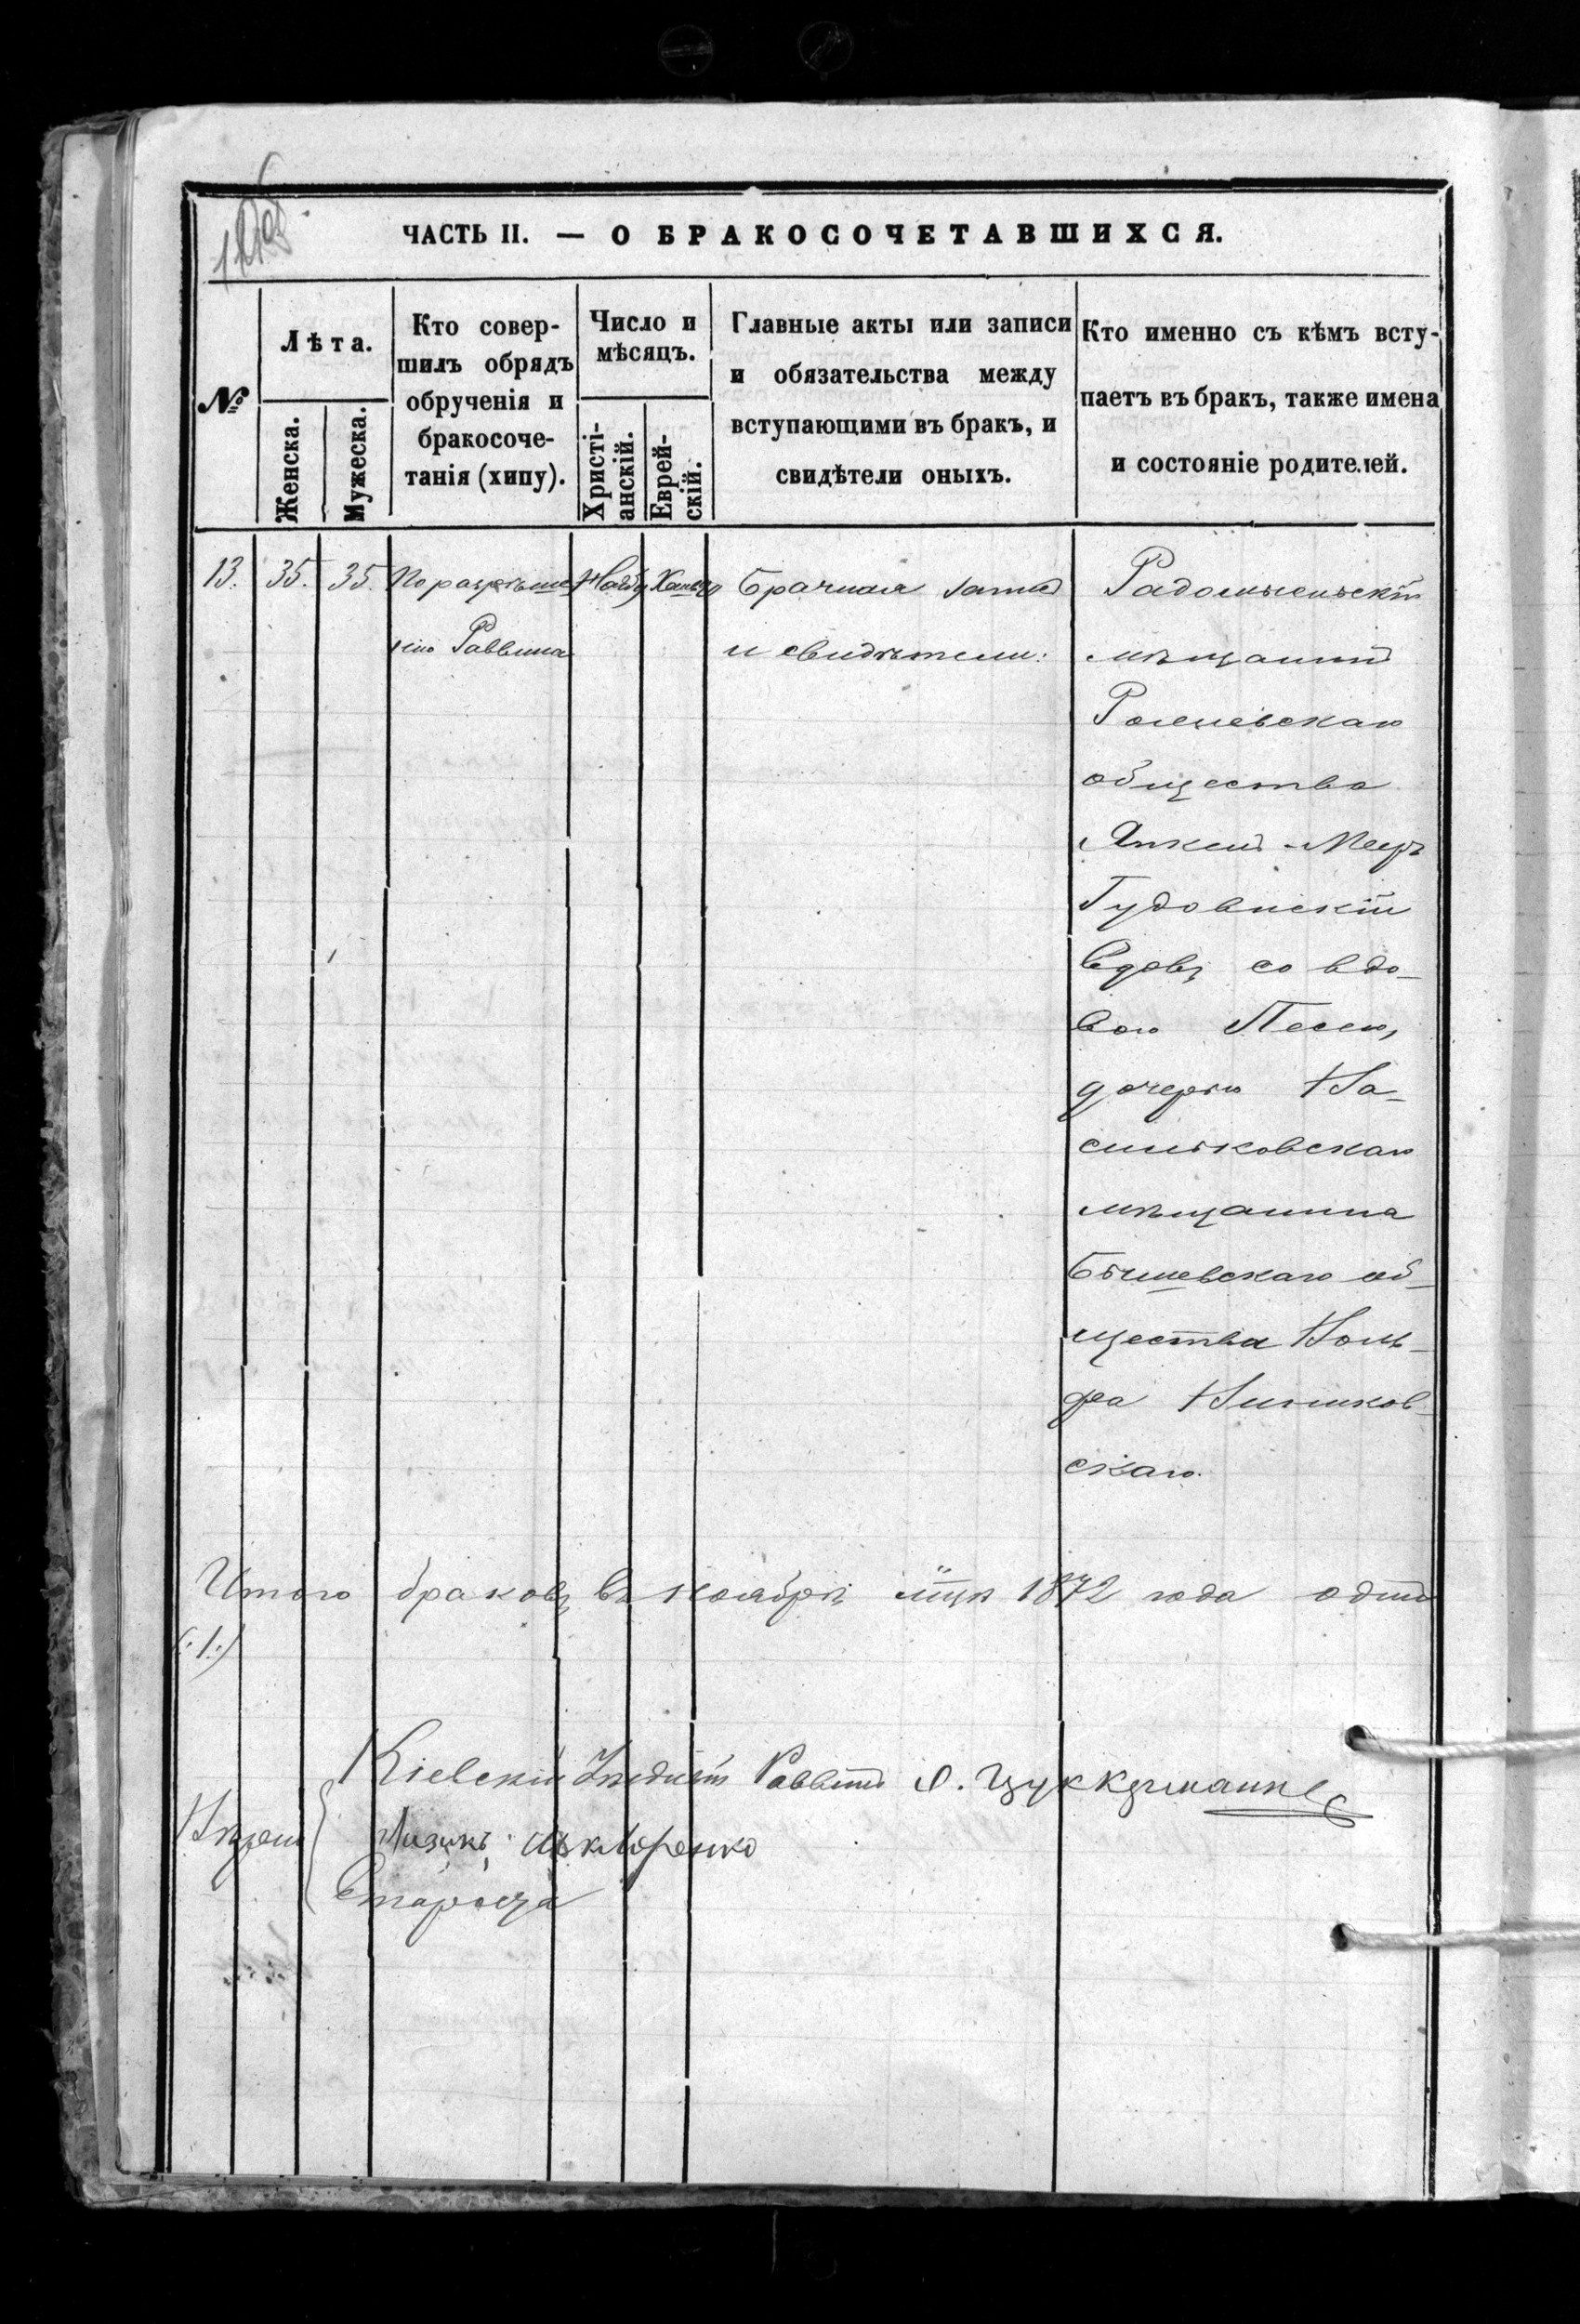 ЧАСТЬ II. — О БРАКОСОЧЕТАВШИХСЯ.
№
Лѣта.
Женска.
Мужеска.
Кто совер-
шилъ обрядъ
обрученія и
бракосоче-
танія (хипу).
Число и
мѣсяцъ.
Христі-
анскій.
Еврей-
скій.
Главные акты или записи
и обязательства между
вступающими въ бракъ, и
свидѣтели оныхъ.
Кто именно съ кѣмъ всту-
паетъ въ бракъ, также имена
и состояніе родителей.
13. 35. 35.
По разрѣше
нію Раввина
Брачная запись
и свидѣтели:
Радомысльскій
мѣщанинъ
общества
Янкель-Мееръ
Гудовискій
вдовецъ со вдо-
вою Песею,
дочерью Ва-
сильковскаго
мѣщанина
Бышевскаго об-
щества Воль-
фа
скаго.
Итого браковъ въ ноябрѣ мцѣ 1872 года одинъ
(:1:)
Кіевскій Уѣздный Раввинъ Цуккерманъ
Члены
Староста